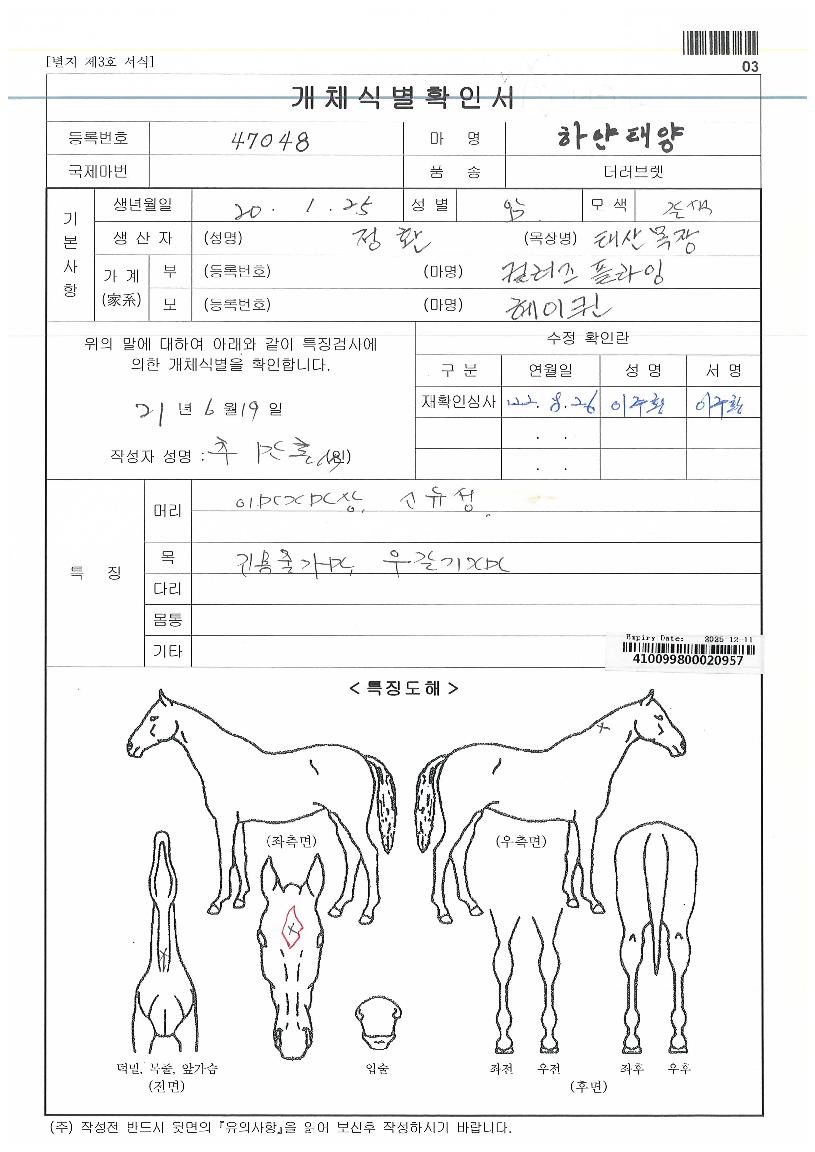 [별지 제3호 서식]
03
개체식별확인서
등록번호 47048 마 명 하얀태양
국제마번 품 종 더러브렛
기본사항
생년월일 20 . 1 . 25 성 별 암 모 색
생 산 자 (성명) 정환 (목장명) 태산목장
가 계 (家系) 부 (등록번호) (마명) 컬러즈플라잉
모 (등록번호) (마명) 헤이퀸
위의 말에 대하여 아래와 같이 특징검사에
의한 개체식별을 확인합니다.
21 년 6 월 19 일
작성자 성명 : (인)
수정 확인란
구 분 연월일 성 명 서 명
재확인심사 '22. 8. 26 이주환 이주환
. .
. .
특 징
머리
목
다리
몸통
기타
Expiry Date: 2025-12-11
410099800020957
< 특징도해 >
(좌측면) (우측면)
턱밑, 목줄, 앞가슴 입술 좌전 우전 좌후 우후
(전면) (후면)
(주) 작성전 반드시 뒷면의 『유의사항』을 읽어 보신후 작성하시기 바랍니다.